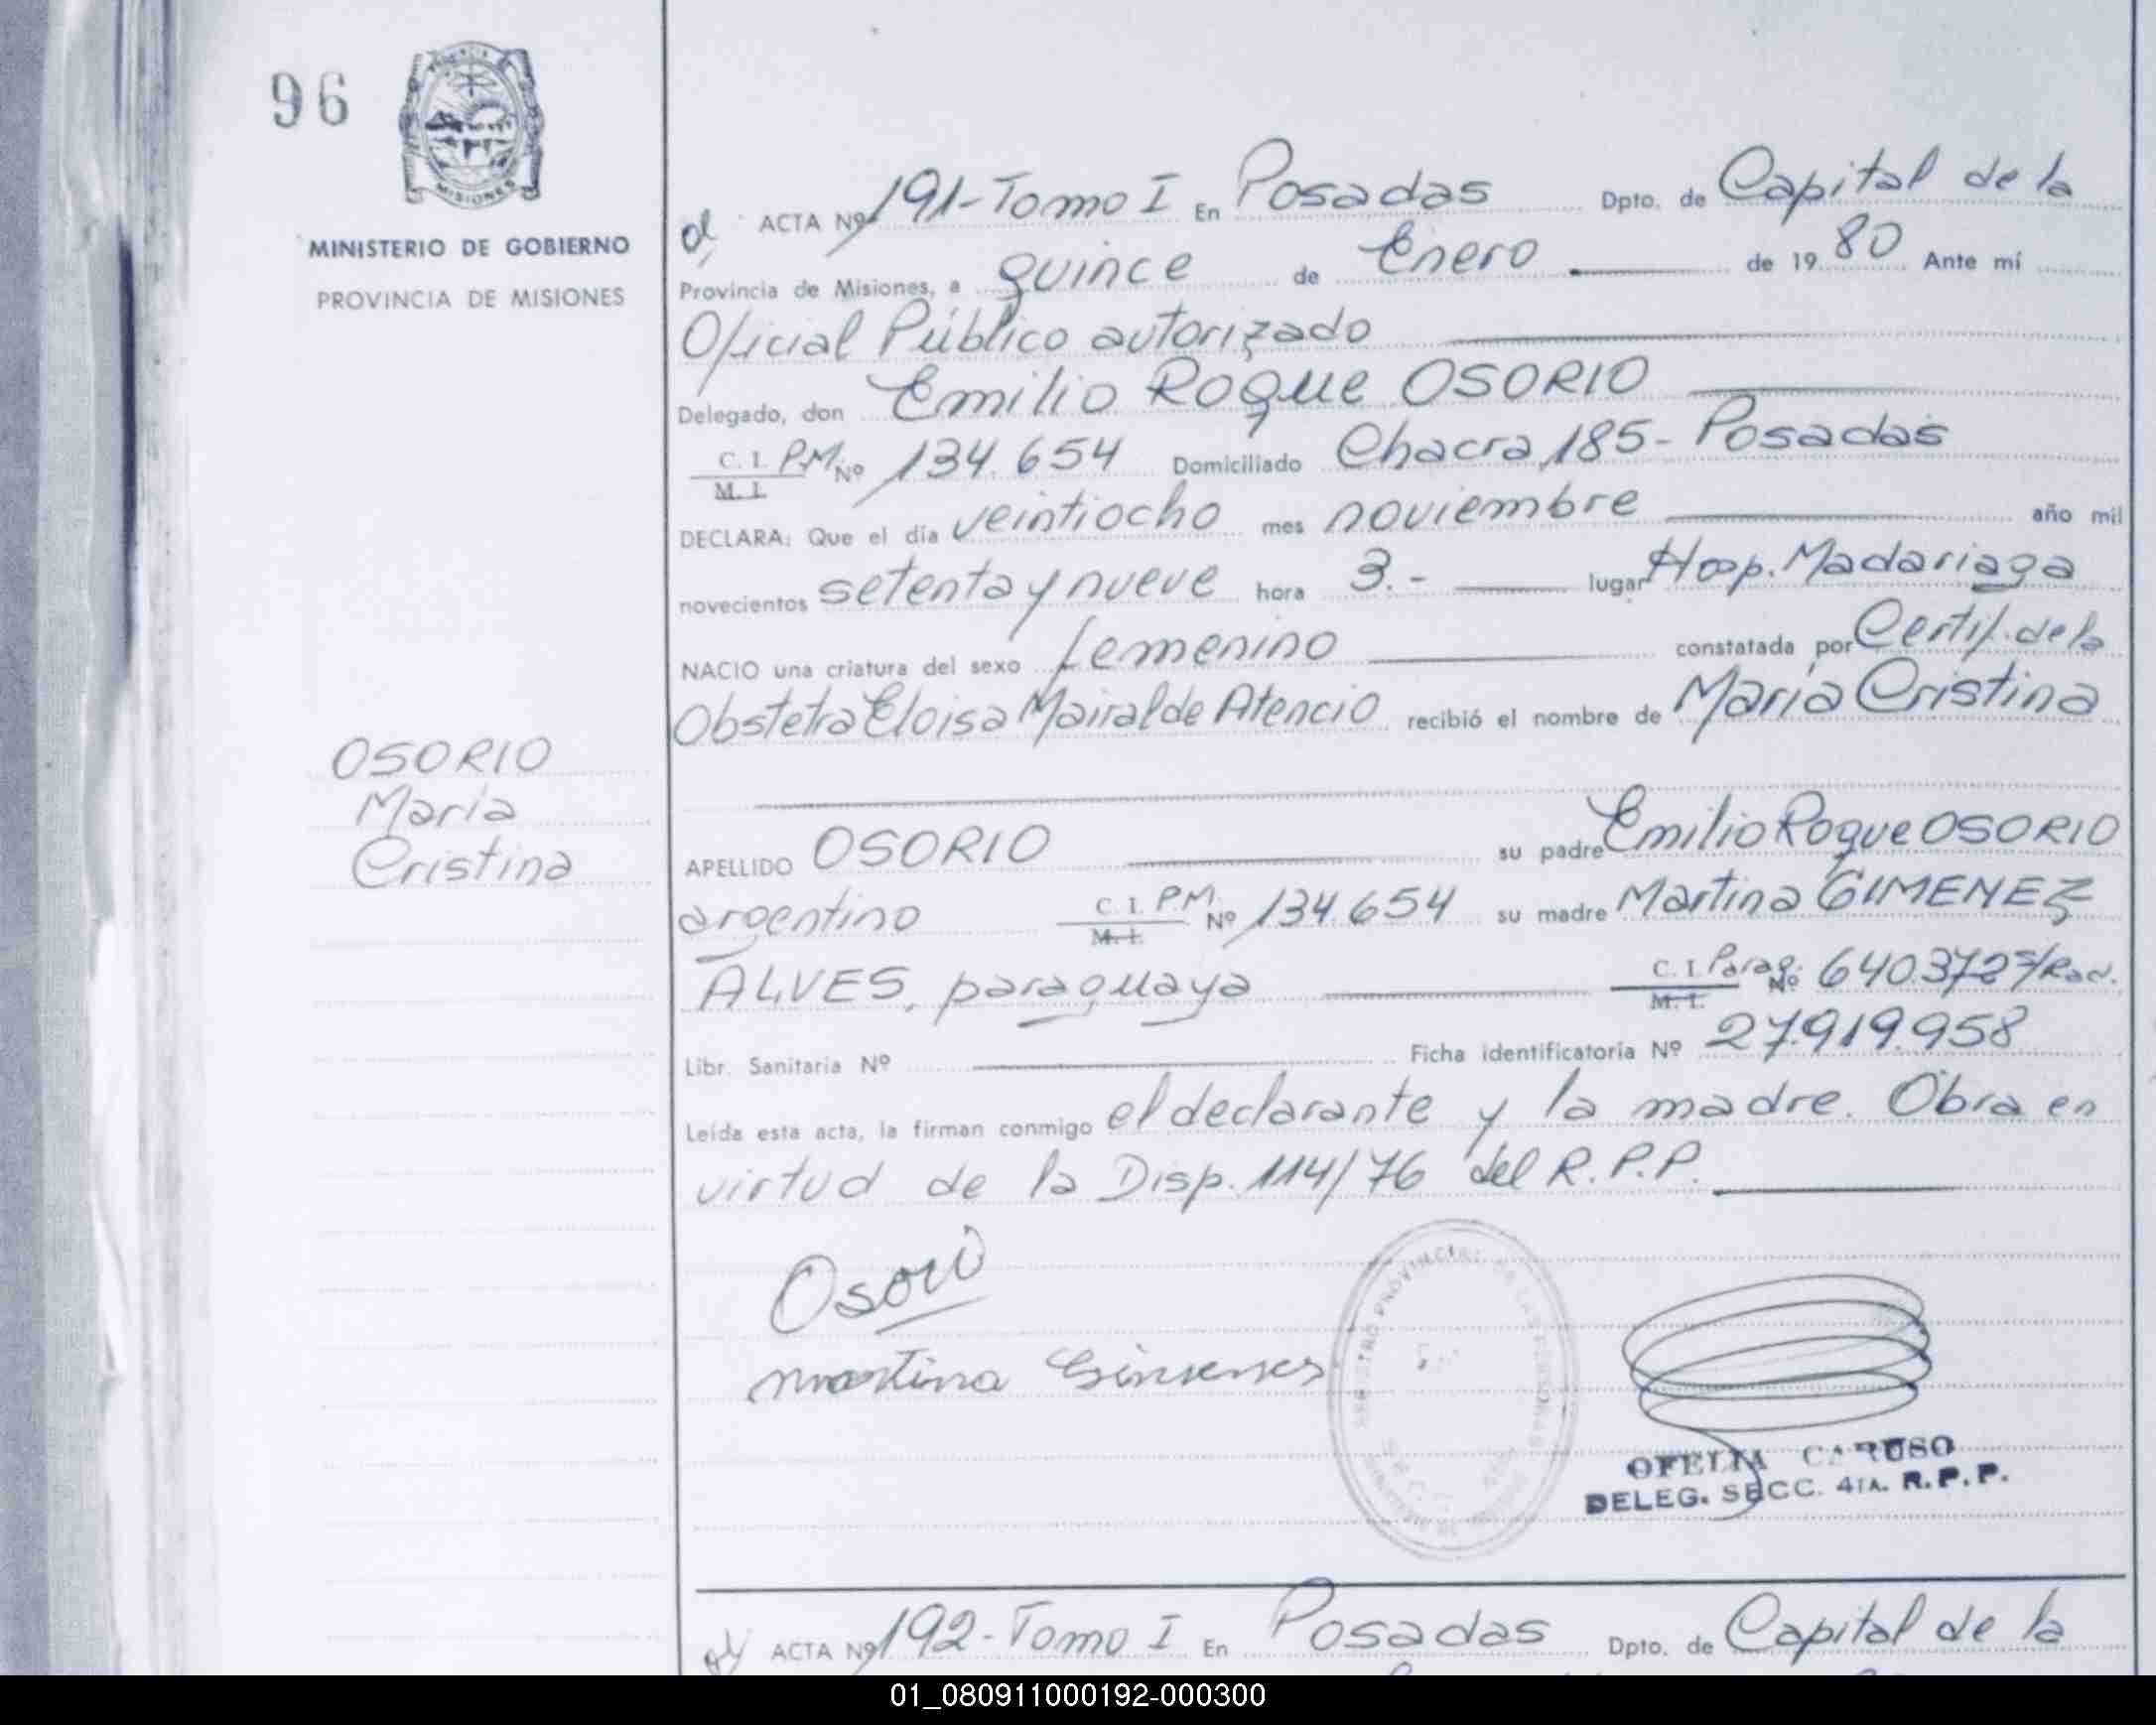 96
PROVINCIA
MISIONES
MINISTERIO DE GOBIERNO
PROVINCIA DE MISIONES
OSORIO
María
Cristina
ACTA Nº 191-Tomo I En Posadas Dpto. de Capital de la
Provincia de Misiones, a quince de Enero de 19 80 Ante mí
Oficial Público autorizado
Delegado, don Emilio Roque OSORIO
C. I. P.M. Nº 134.654 Domiciliado Chacra 185- Posadas
M. I.
DECLARA: Que el día veintiocho mes noviembre año mil
novecientos setenta y nueve hora 3.- lugar Hosp. Madariaga
NACIO una criatura del sexo femenino constatada por Certif. de la
Obstetra Eloisa Mairal de Atencio recibió el nombre de María Cristina
APELLIDO OSORIO su padre Emilio Roque OSORIO
argentino C. I. P.M. Nº 134.654 su madre Martina GIMENEZ
M. I.
ALVES, paraguaya C. I. Parag. Nº 640.372 s/Rad.
M. I.
Libr. Sanitaria Nº Ficha identificatoria Nº 27.919.958
Leída esta acta, la firman conmigo el declarante y la madre. Obra en
virtud de la Disp. 114/76 del R.P.P.
Osorio
REGISTRO PROVINCIAL DE LAS PERSONAS
martina Gimenes
OFELIA CARUSO
DELEG. SECC. 4TA. R.P.P.
ACTA Nº 192-Tomo I En Posadas Dpto. de Capital de la
01_080911000192-000300